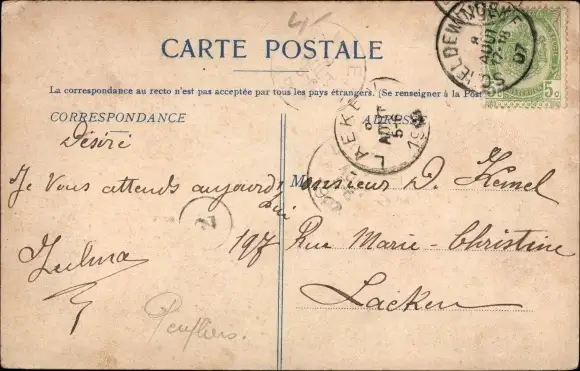 CARTE POSTALE
La correspondance au recto n'est pas acceptée par tous les pays étrangers. (Se renseigner à la Post
CORRESPONDANCE
ADRESSE
Désiré
Je Vous attends aujourd
hui
Zulma
Monsieur D. Kemel
197 Rue Marie-Christine
Laeken
LAEKEN
8
AOUT
5-6
19
8
AOUT
17-18
07
5c
2